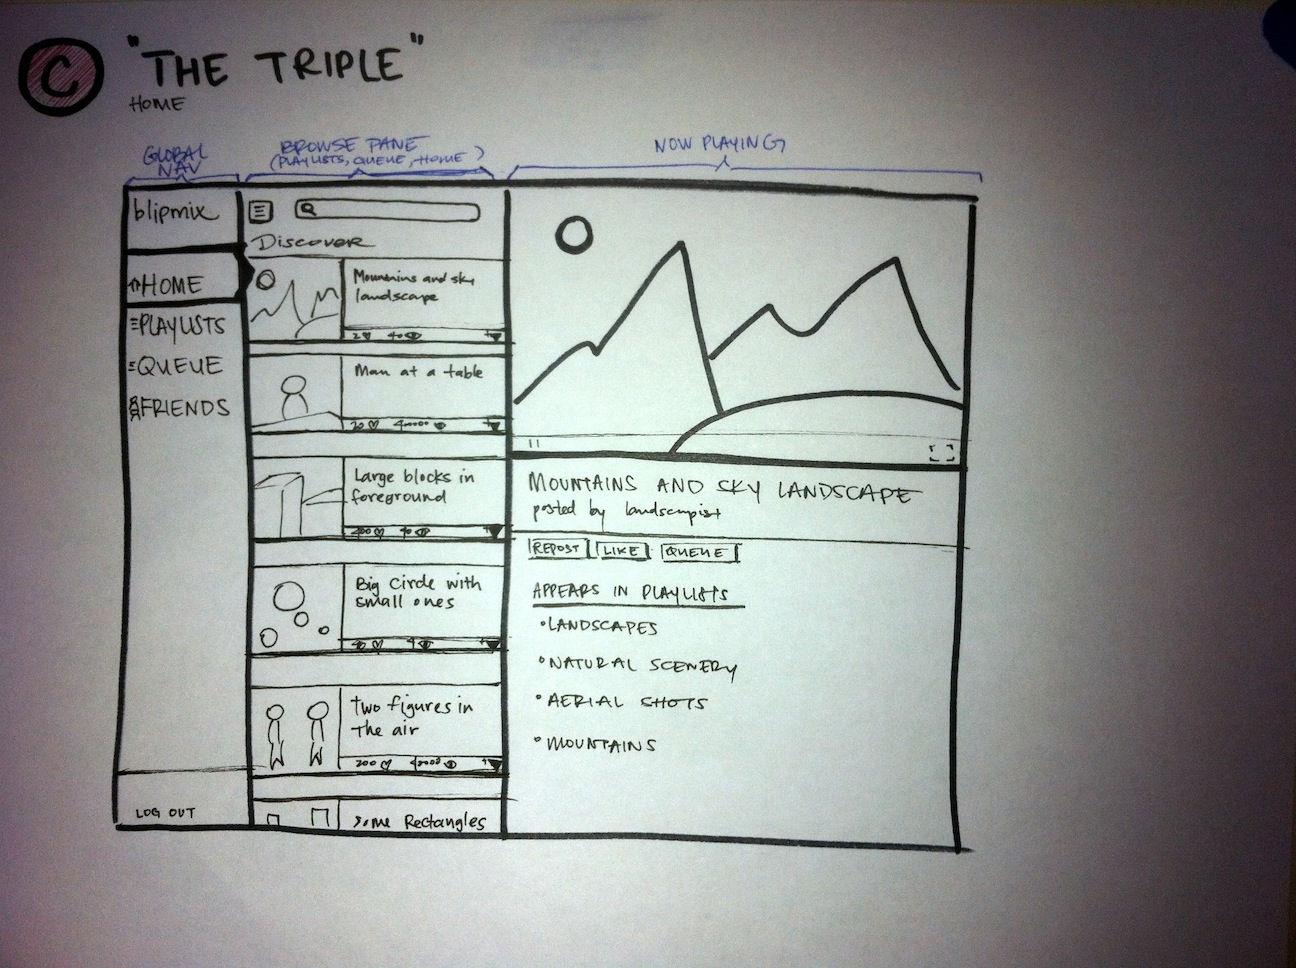 C
"THE TRIPLE"
HOME
GLOBAL
NAV
BROWSE PANE
(PLAYLISTS, QUEUE, HOME)
NOW PLAYING
blipmix
HOME
PLAYLISTS
QUEUE
FRIENDS
LOG OUT
Discover
Mountains and sky
landscape
2 40
Man at a table
20
Large blocks in
foreground
400
Big Circle with
small ones
Two figures in
the air
200
Some Rectangles
MOUNTAINS AND SKY LANDSCAPE
posted by landscapist
REPOST LIKE QUEUE
APPEARS IN PLAYLISTS
•LANDSCAPES
•NATURAL SCENERY
•AERIAL SHOTS
•MOUNTAINS